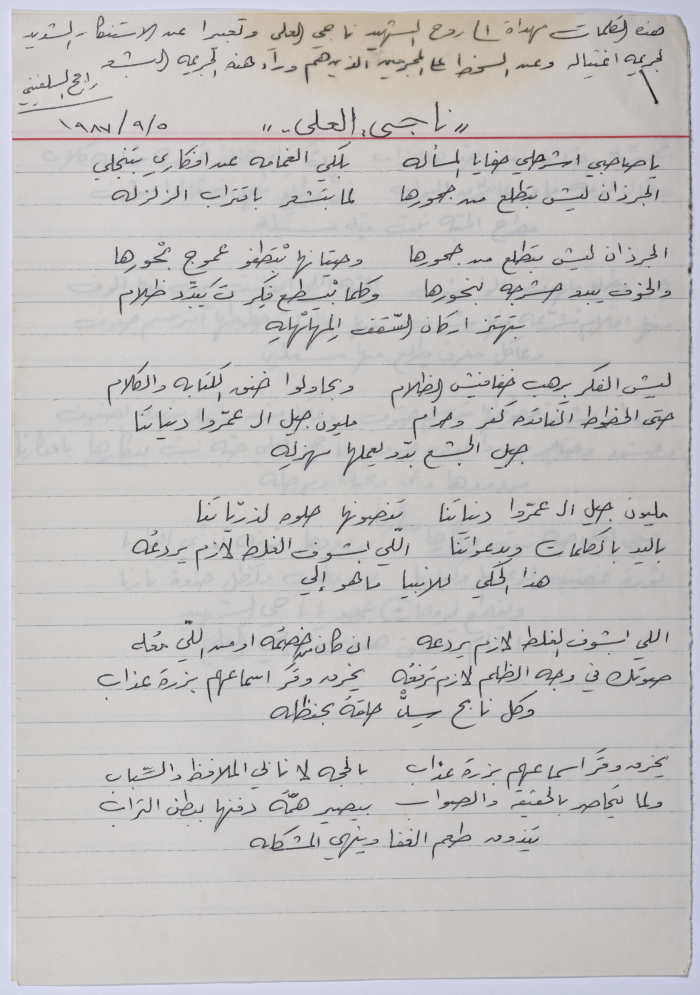 هذه الكلمات مهداة الى روح الشهيد ناجي العلي وتعبيرا عن الاستنكار الشديد
لجريمة اغتياله وعن السخط على المجرمين الذين هم وراء هذه الجريمة البشعه
راجح السلفيتي
"ناجي العلي" ١٩٨٧/٩/٥
يا صاحبي اشرحلي خفايا المسأله بلكي الغمامه عن افكاري بتنجلي
الجرذان ليش بتطلع من جحورها لما بتشعر باقتراب الزلزله
الجرذان ليش بتطلع من جحورها وحيتانها بتطفو عموج بحورها
والخوف يبدو حشرجه لنحورها وكلما بيسطع فكر ت يبدّد ظلام
بتهتز اركان السّقف المهلهله
ليش الفكر يرهب خفافيش الظلام ويحاولوا خنق الكتابه والكلام
حتى الخطوط الناقده كفر وحرام مليون جيل ال عمّروا دنياتنا
جيل الجشع بدّو يعملها مهزله
مليون جيل ال عمّروا دنياتنا تنصونها حلوه لذريّاتنا
باليد بالكلمات وبدعواتنا اللّي ابشوف الغلط لازم يردعُه
هذا الحكي للانبيا ما هو إلي
اللي ابشوف الغلط لازم يردعه ان كان من خصمُه او من اللّي معُه
صوتك في وجه الظلم لازم ترفعُه يخرق وقَر اسماعهم بزرة عذاب
وكل نابح يسدّ حلقهُ بحنظله
يخرق وقَر اسماعهم بزرة عذاب بالحجه لا نابي الملافظ والسّباب
ولما يتحاصر بالحقيقه والصواب بيصير همّه دفنها ببطن التراب
تيذوق طعم الغفا وينهي المشكله